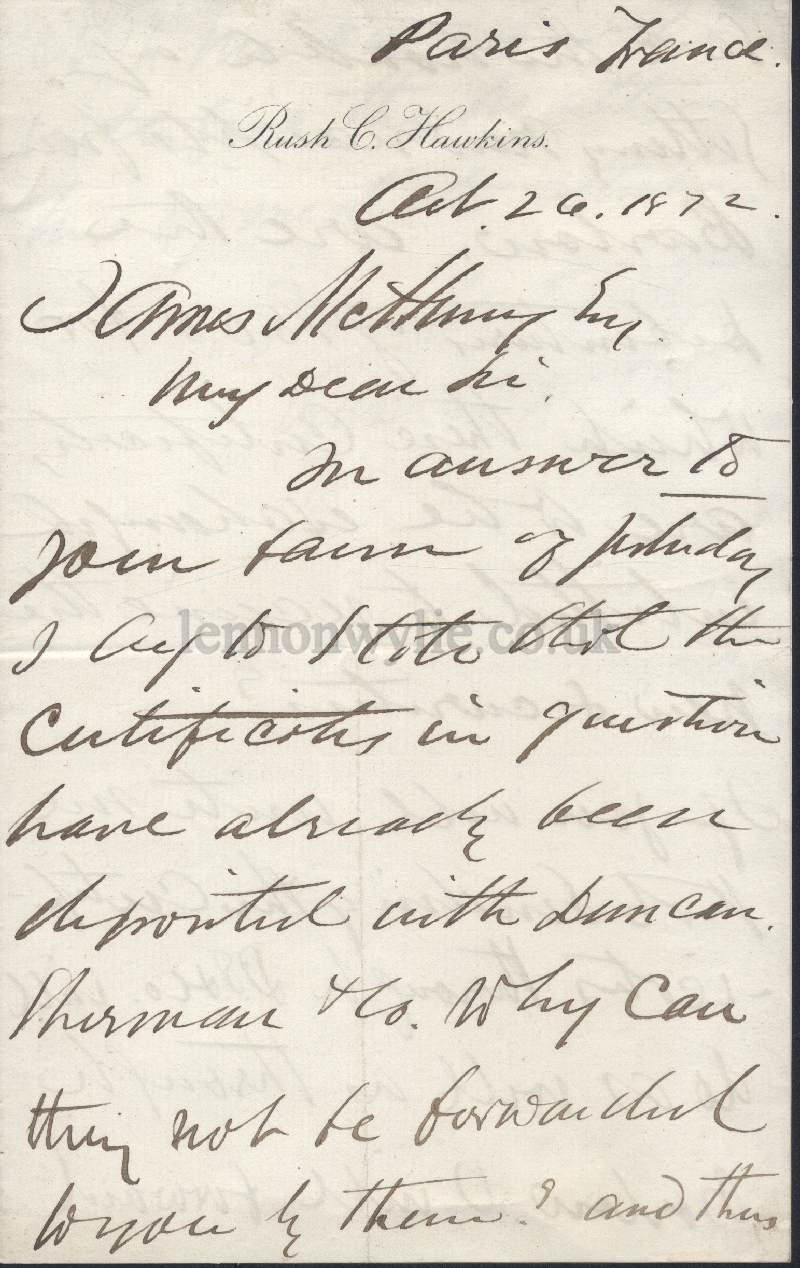 Paris France.
Rush C. Hawkins.
Oct. 26. 1872.
James McHenry Esq.
My Dear Sir.
In answer to
your favor of yesterday
I beg to state that the
certificates in question
have already been
deposited with Duncan.
Sherman & Co. Why can
they not be forwarded
to you by them? and thus
lennonwylie.co.uk